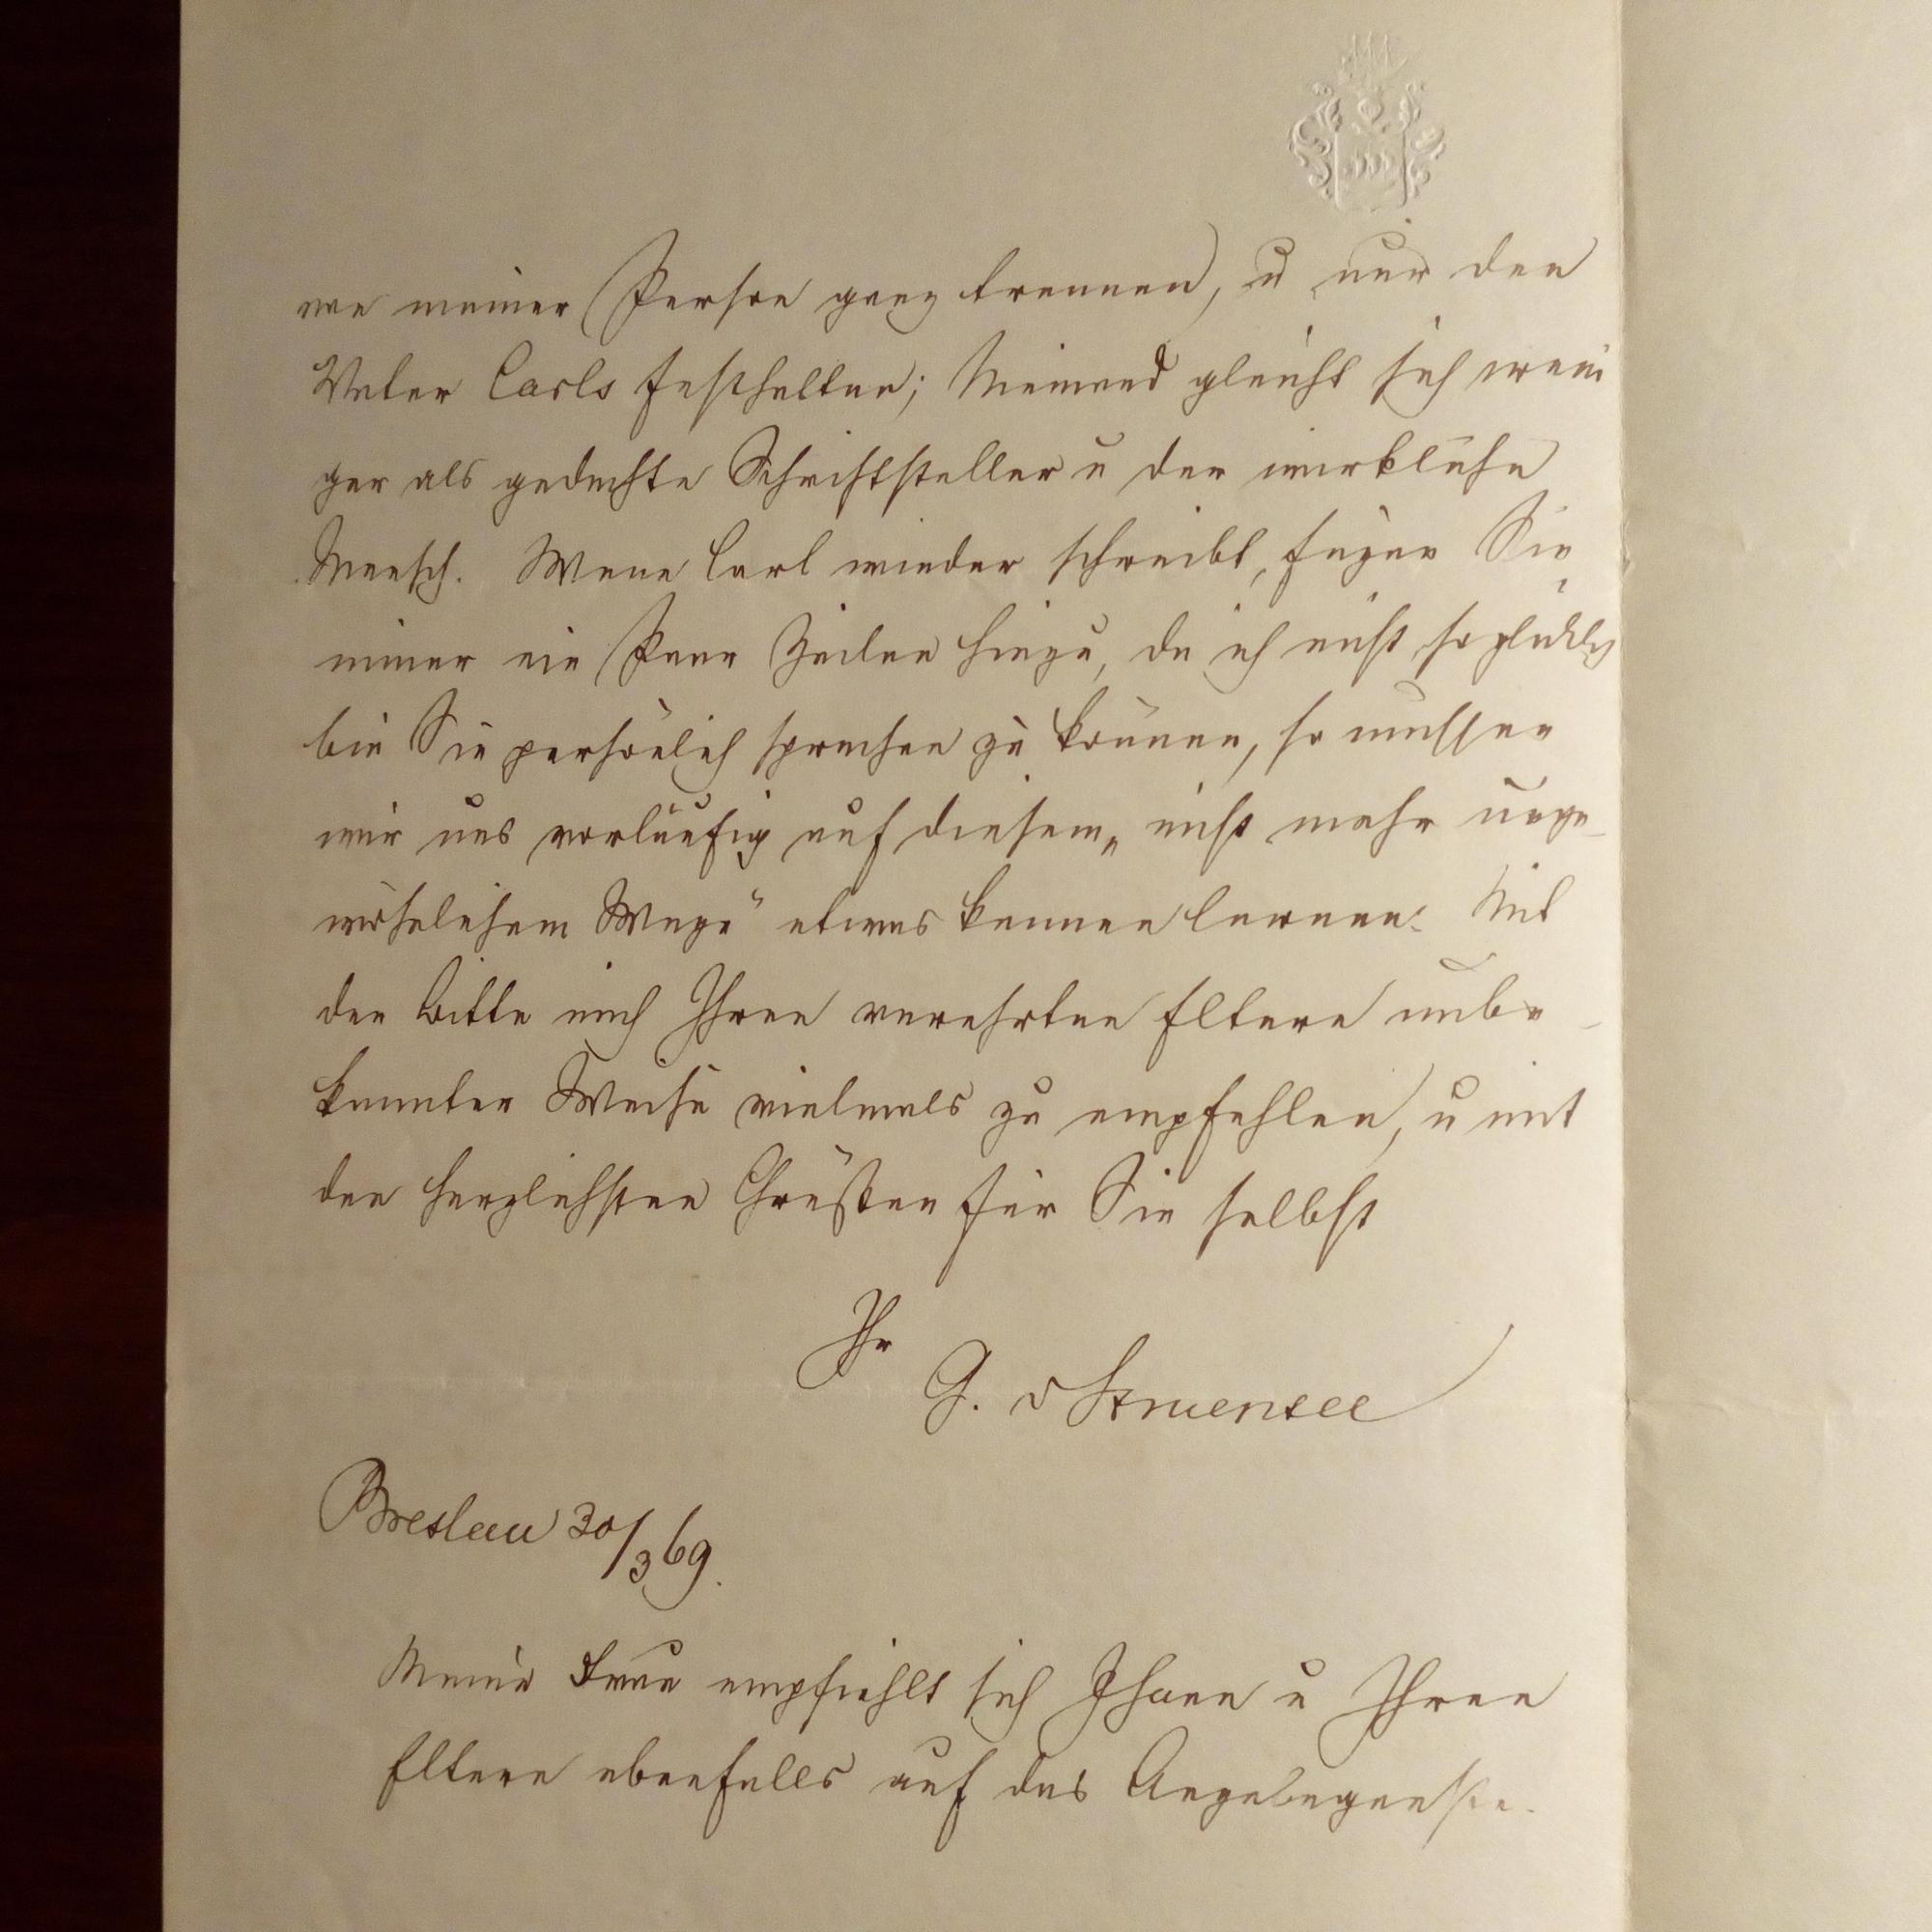 von meiner Person ganz trennen, u nur den
Vater Carls festhalten; Niemand gleicht sich weni
ger als gedachte Schriftsteller u der wirkliche
Mensch. Wenn Carl wieder schreibt, fügen Sie
immer ein Paar Zeilen hinzu, da ich nicht so glücklich
bin Sie persönlich sprechen zu können, so müssen
wir uns vorläufig auf diesem „nicht mehr unge-
wöhnlichem Wege" etwas kennen lernen. Mit
der Bitte mich Ihren verehrten Eltern unbe-
kannter Weise vielmals zu empfehlen, u mit
den herzlichsten Grüßen für Sie selbst
Ihr
G. v Struensee
Breslau 30/3 69.
Meine Frau empfiehlt sich Ihnen u Ihren
Eltern ebenfalls auf das Angelegenste.